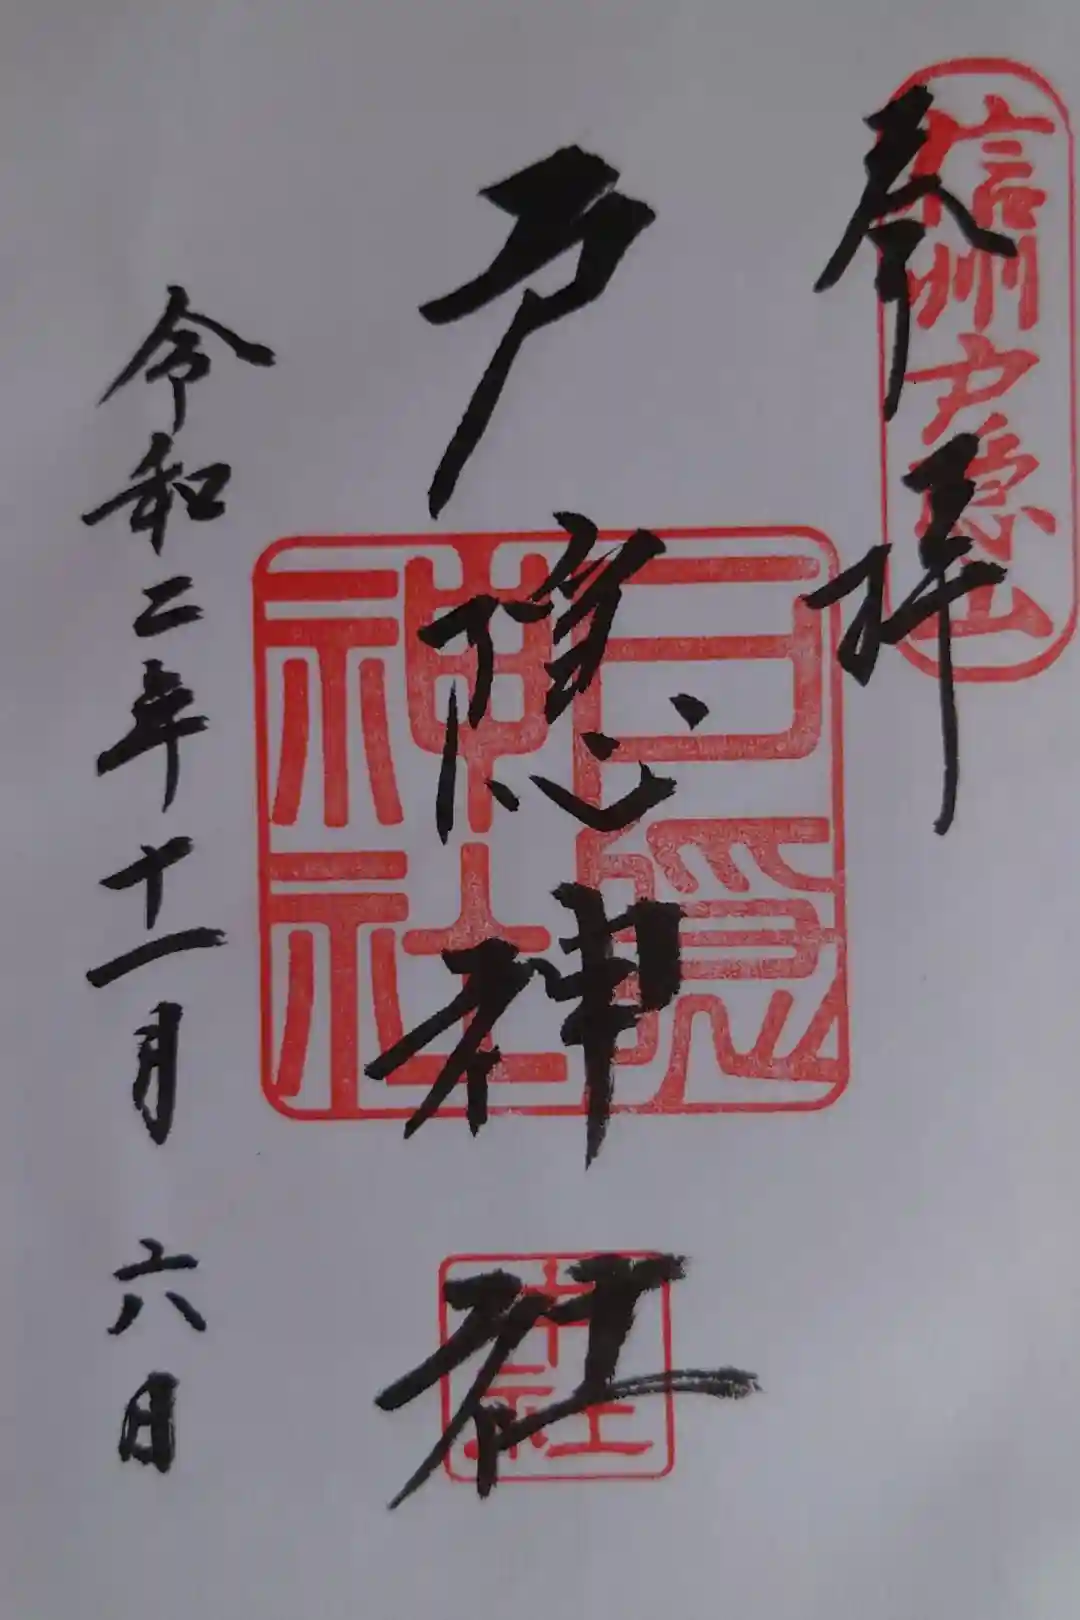 奉拝
信州戸隠山
戸隠神社
戸隠神社
中社
令和二年十一月六日